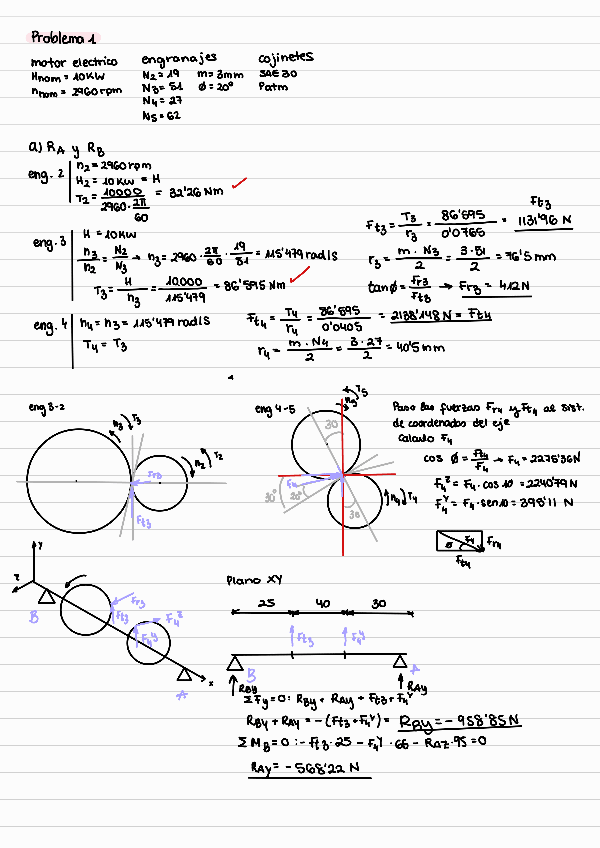 Problema 1
motor electrico engranajes cojinetes
Hnom = 10KW N2 = 19 m = 3mm SAE 30
nnom = 2960 rpm N3 = 51 ø = 20° Patm
N4 = 27
N5 = 62
a) RA y RB
eng. 2 n2 = 2960 rpm
H2 = 10 KW = H
T2 = 10000 / (2960 · 2π/60) = 32'26 Nm
eng. 3 H = 10KW
n3/n2 = N2/N3 → n3 = 2960 · 2π/60 · 19/51 = 115'479 rad/s
T3 = H/n3 = 10.000/115'479 = 86'595 Nm
Ft3
Ft3 = T3/r3 = 86'595/0'0765 = 1131'96 N
r3 = m · N3/2 = 3·51/2 = 76'5 mm
tanø = Fr3/Ft3 → Fr3 = 412N
eng. 4 n4 = n3 = 115'479 rad/s
T4 = T3
Ft4 = T4/r4 = 86'595/0'0405 = 2138'148 N = Ft4
r4 = m · N4/2 = 3·27/2 = 40'5 mm
eng 3-2
n3 T3
n2 T2
Fr3
Ft3
eng 4-5
n5 T5
30
F4
30° 20°
n4 T4
30
Paso las fuerzas Fr4 y Ft4 al sist.
de coordenados del eje
Calculo F4
cos ø = Ft4/F4 → F4 = 2275'36N
F4^z = F4 · cos 10 = 2240'79N
F4^y = F4 · sen10 = 395'11 N
ø F4 Fr4
Ft4
y
z
B
Fr3
Ft3
F4^z
F4^y
x
A
Plano XY
25 40 30
Ft3 F4^y
B A
RBy RAy
ΣFy = 0: RBy + RAy + Ft3 + F4^y
RBy + RAy = -(Ft3 + F4^y) = RBy = -958'85N
ΣMB = 0: -Ft3 · 25 - F4^y · 66 - RAz · 95 = 0
RAy = -568'22 N